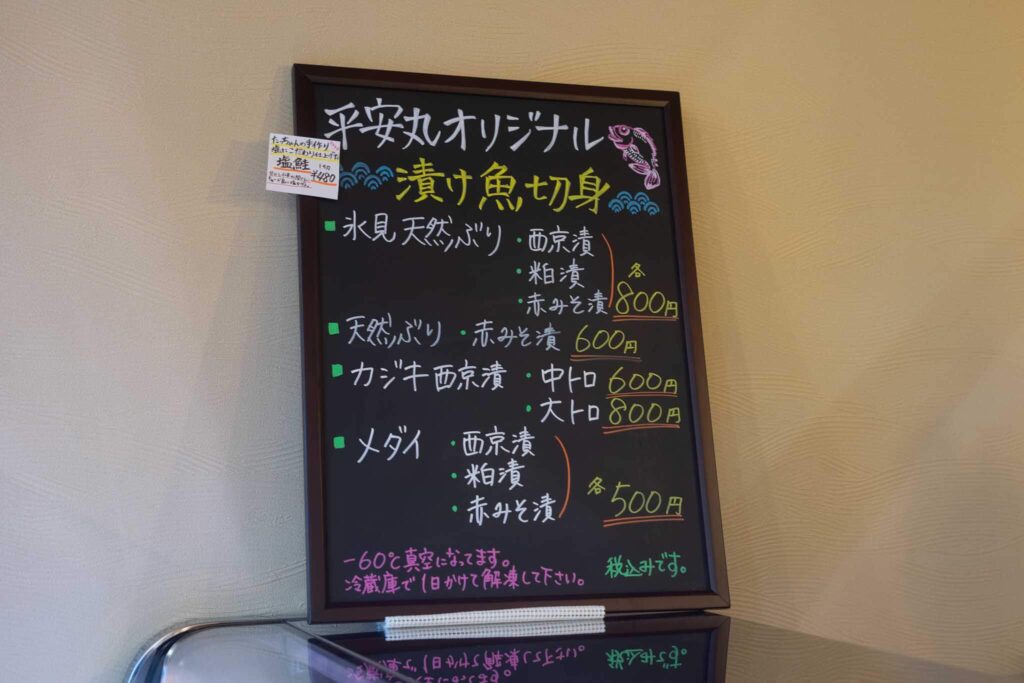 平安丸オリジナル
漬け魚切身
たっちゃんの手作り
塩にこだわり仕上げた
塩鮭 1切 ¥480
氷見 天然ぶり ・西京漬
・粕漬
・赤みそ漬
各 800円
天然ぶり ・赤みそ漬 600円
カジキ西京漬 ・中トロ 600円
・大トロ 800円
メダイ ・西京漬
・粕漬
・赤みそ漬
各 500円
-60℃真空になってます。
冷蔵庫で1日かけて解凍して下さい。
税込みです。